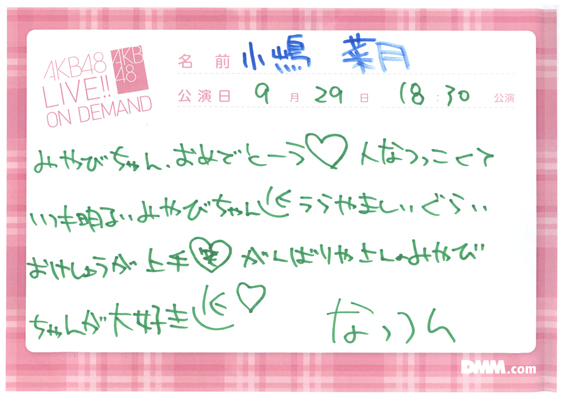 AKB48
LIVE!!
ON DEMAND
AKB
48
名前 小嶋 菜月
公演日 9月29日 18:30 公演
みやびちゃん、おめでとーう♡人なつっこくて
いつも明るいみやびちゃん うらやましいぐらい
おけしょうが上手 笑 がんばりやさんのみやび
ちゃんが大好き♡
なっつん
DMM.com